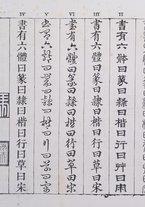 II
書有六體曰篆曰隸曰楷曰行曰草曰宋
III
書有六體曰篆曰隸曰楷曰行曰草曰宋
IV
書有六體曰篆曰隸曰楷曰行曰草曰宋
V
書有六體曰篆曰隸曰楷曰行曰草曰宋
VI
書有六體曰篆曰隸曰楷曰行曰草曰宋